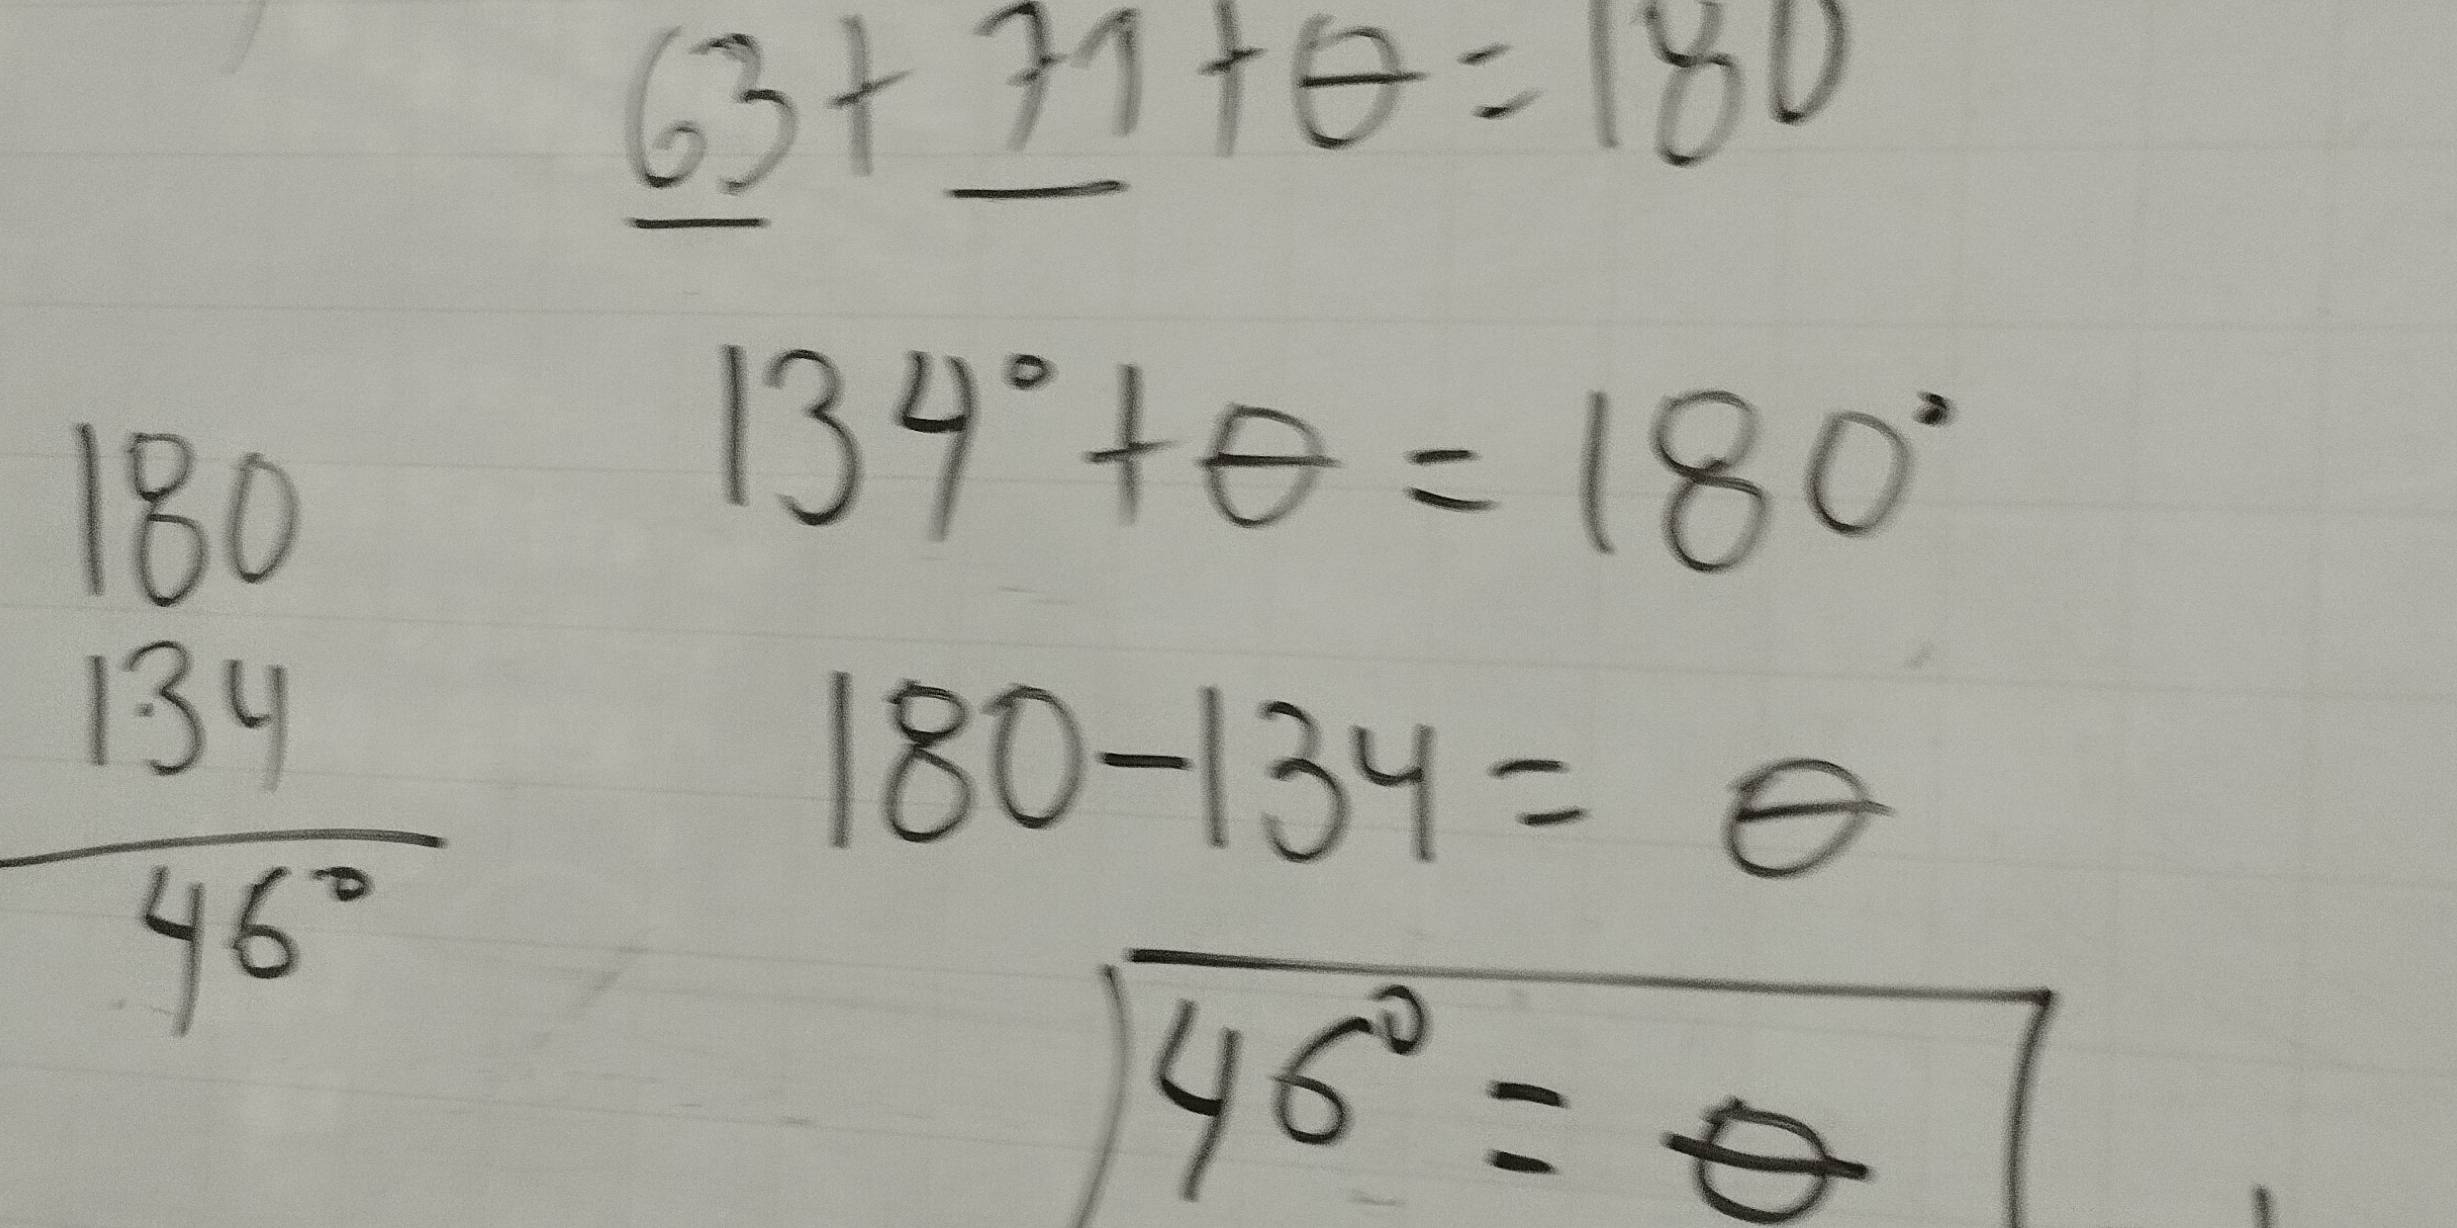 63 + 71 + θ = 180
134° + θ = 180°
180
134
46°
180 - 134 = θ
46° = θ